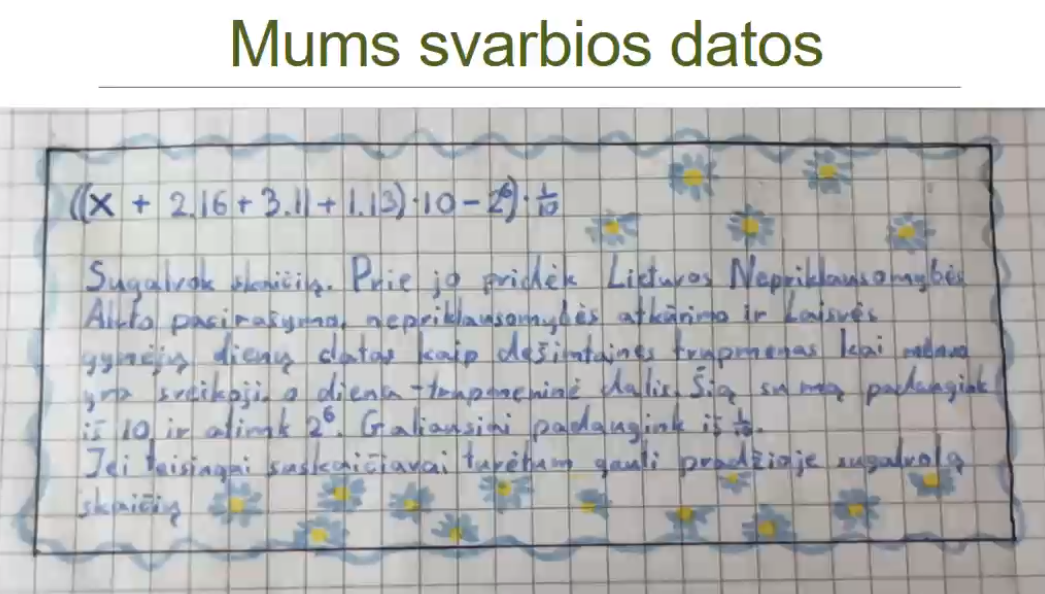 Mums svarbios datos
((x + 2.16 + 3.11 + 1.13) · 10 − 2⁶) · 1/10
Sugalvok skaičių. Prie jo pridėk Lietuvos Nepriklausomybės
Akto pasirašymo, nepriklausomybės atkūrimo ir Laisvės
gynėjų dienų datas kaip dešimtaines trupmenas kai mėnuo
yra sveikoji, o diena - trupmeninė dalis. Šią sumą padaugink
iš 10 ir atimk 2⁶. Galiausiai padaugink iš 1/10.
Jei teisingai suskaičiavai turėtum gauti pradžioje sugalvotą
skaičių